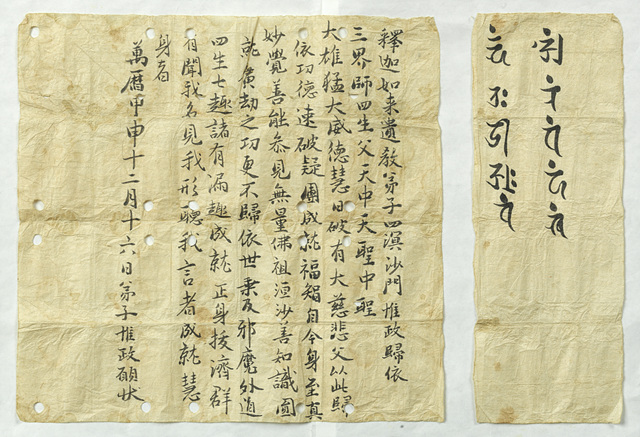 釋迦如来遺敎弟子四溟沙門惟政歸依
三界師四生父天中天聖中聖
大雄猛大威德慧日破有大慈悲父以此歸
依功德速破疑團成就福智自今身至真
妙覺善能叅見無量佛祖洹沙善知識圓
就廣劫之功更不歸依世乘及邪魔外道
四生七趣諸有漏趣成就正身援濟群
有聞我名見我形聽我言者成就慧
身者
萬曆甲申十二月十六日弟子惟政願状